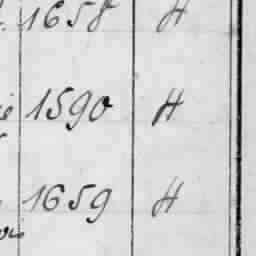 1658 H
1590 H
1659 H